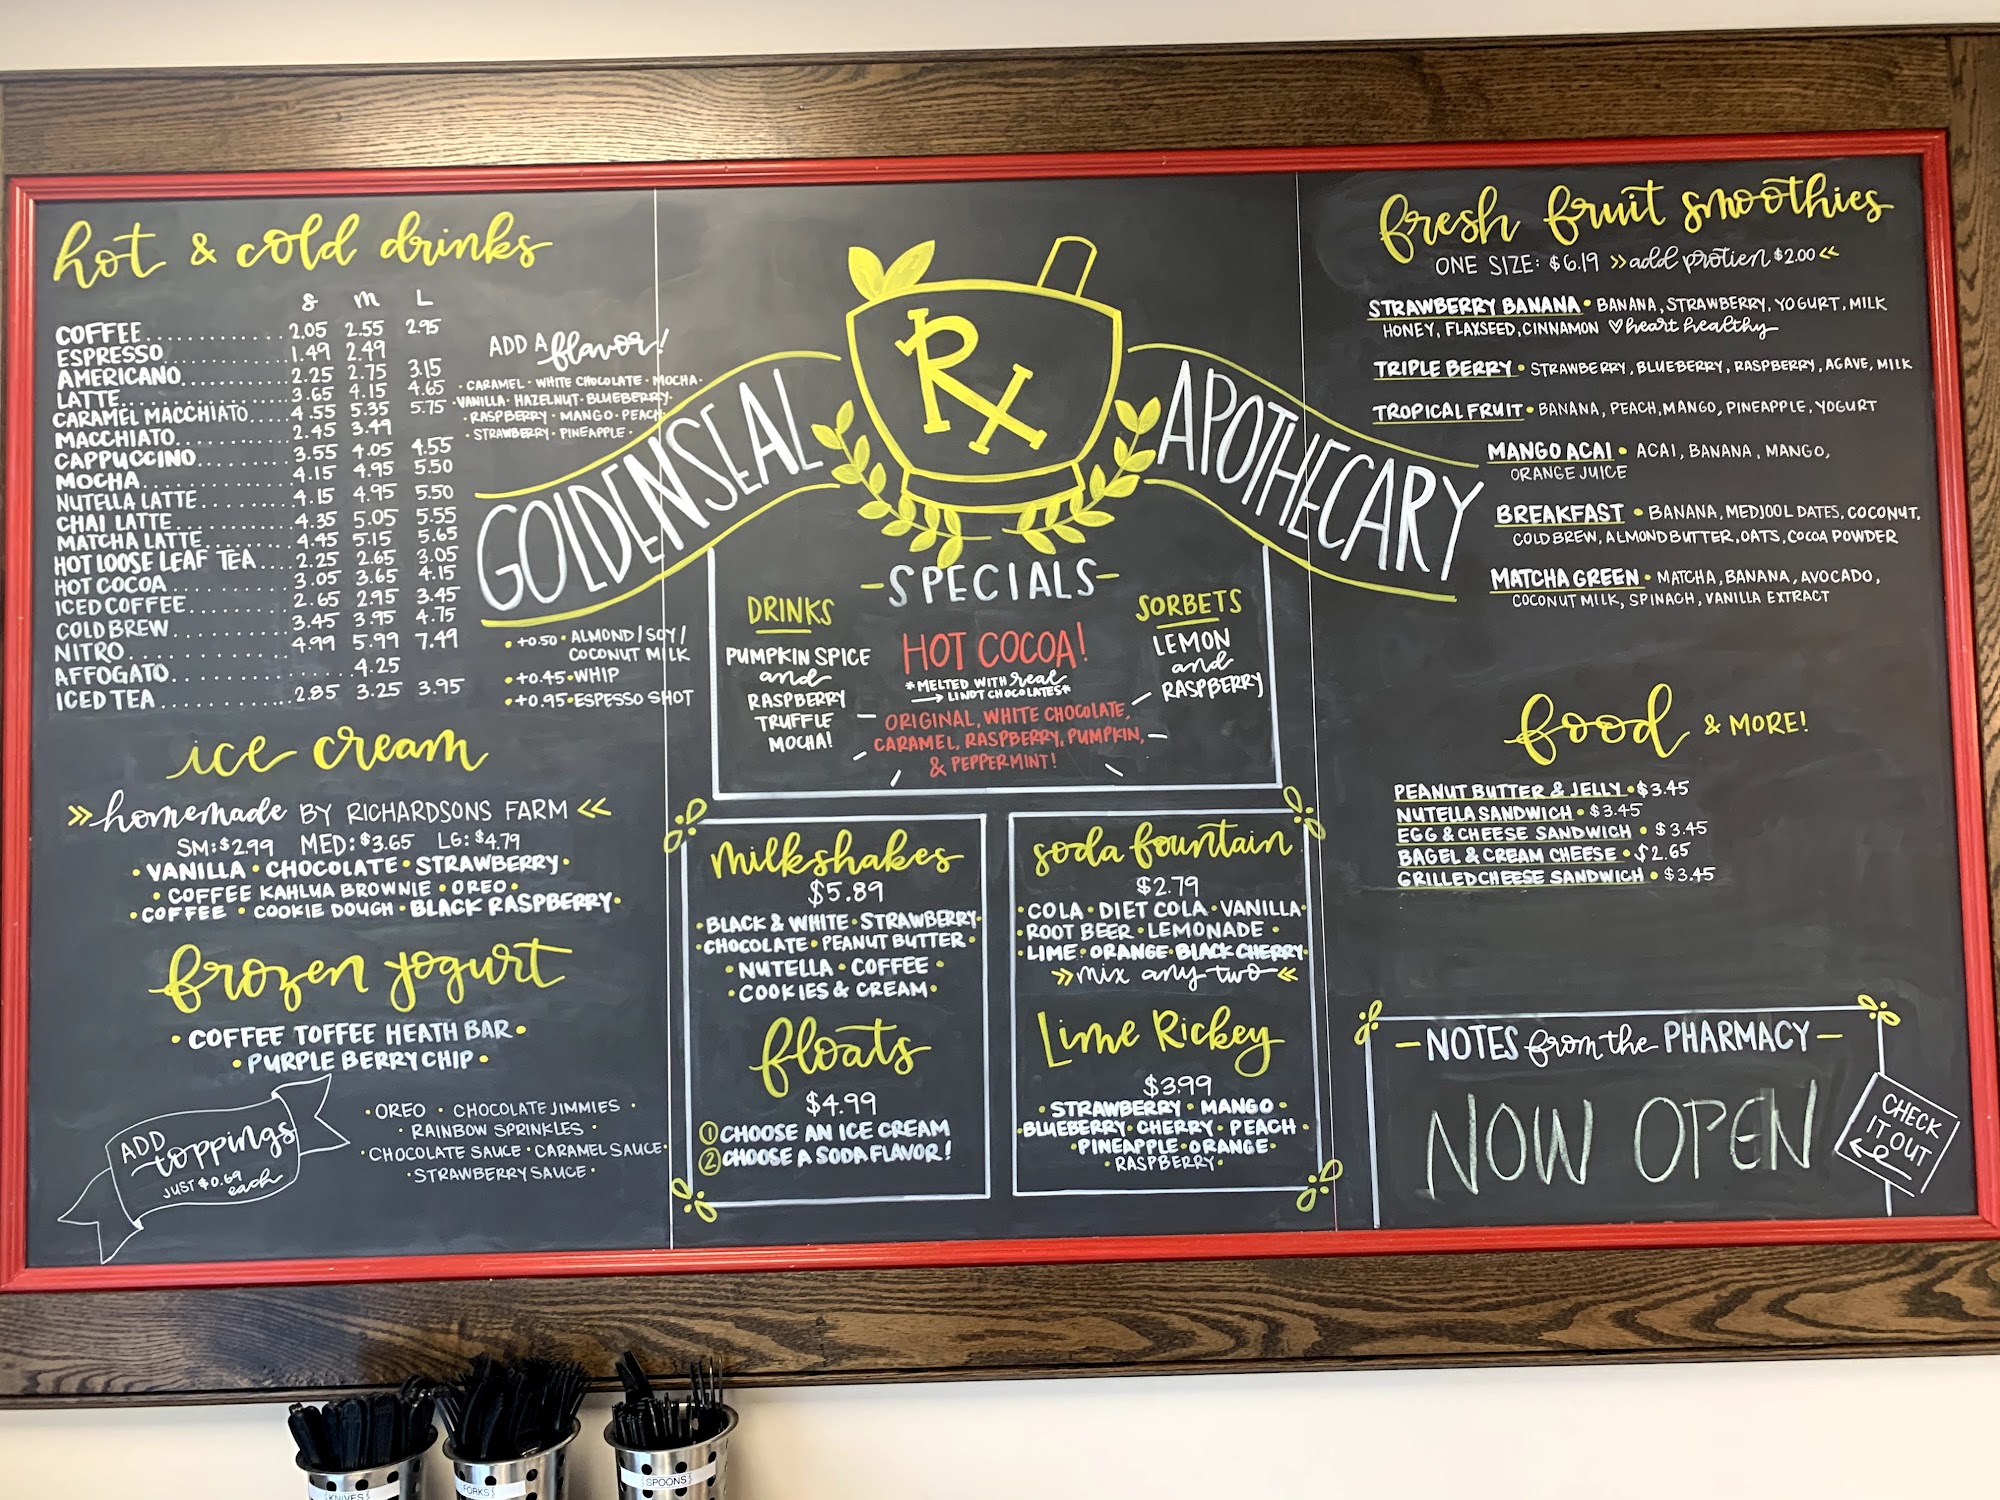 hot & cold drinks
S M L
COFFEE 2.05 2.55 2.95
ESPRESSO 1.49 2.49
AMERICANO 2.25 2.75 3.15
LATTE 3.65 4.15 4.65
CARAMEL MACCHIATO 4.55 5.35 5.75
MACCHIATO 2.45 3.49
CAPPUCCINO 3.55 4.05 4.55
MOCHA 4.15 4.95 5.50
NUTELLA LATTE 4.15 4.95 5.50
CHAI LATTE 4.35 5.05 5.55
MATCHA LATTE 4.45 5.15 5.65
HOT LOOSE LEAF TEA 2.25 2.65 3.05
HOT COCOA 3.05 3.65 4.15
ICED COFFEE 2.65 2.95 3.45
COLD BREW 3.45 3.95 4.75
NITRO 4.99 5.99 7.49
AFFOGATO 4.25
ICED TEA 2.85 3.25 3.95
ADD A flavor!
• CARAMEL • WHITE CHOCOLATE • MOCHA •
VANILLA • HAZELNUT • BLUEBERRY •
• RASPBERRY • MANGO • PEACH
• STRAWBERRY • PINEAPPLE •
• +0.50 • ALMOND / SOY /
COCONUT MILK
• +0.45 • WHIP
• +0.95 • ESPESSO SHOT
ice cream
>> homemade BY RICHARDSONS FARM <<
SM: $2.99 MED: $3.65 LG: $4.79
• VANILLA • CHOCOLATE • STRAWBERRY •
• COFFEE KAHLUA BROWNIE • OREO •
• COFFEE • COOKIE DOUGH • BLACK RASPBERRY •
frozen yogurt
• COFFEE TOFFEE HEATH BAR •
• PURPLE BERRY CHIP •
ADD toppings
JUST $0.69 each
• OREO • CHOCOLATE JIMMIES •
• RAINBOW SPRINKLES •
• CHOCOLATE SAUCE • CARAMEL SAUCE •
• STRAWBERRY SAUCE •
GOLDENSEAL Rx APOTHECARY
- SPECIALS -
DRINKS
PUMPKIN SPICE
and
RASPBERRY
TRUFFLE
MOCHA!
HOT COCOA!
* MELTED WITH real
→ LINDT CHOCOLATES *
ORIGINAL, WHITE CHOCOLATE,
CARAMEL, RASPBERRY, PUMPKIN,
& PEPPERMINT!
SORBETS
LEMON
and
RASPBERRY
milkshakes
$5.89
• BLACK & WHITE • STRAWBERRY •
• CHOCOLATE • PEANUT BUTTER •
• NUTELLA • COFFEE •
• COOKIES & CREAM •
floats
$4.99
① CHOOSE AN ICE CREAM
② CHOOSE A SODA FLAVOR!
soda fountain
$2.79
• COLA • DIET COLA • VANILLA •
• ROOT BEER • LEMONADE •
• LIME • ORANGE • BLACK CHERRY •
>> mix any two <<
Lime Rickey
$3.99
• STRAWBERRY • MANGO •
• BLUEBERRY • CHERRY • PEACH •
• PINEAPPLE • ORANGE •
• RASPBERRY •
fresh fruit smoothies
ONE SIZE: $6.19 >> add protien $2.00 <<
STRAWBERRY BANANA • BANANA, STRAWBERRY, YOGURT, MILK
HONEY, FLAXSEED, CINNAMON ♡ heart healthy
TRIPLE BERRY • STRAWBERRY, BLUEBERRY, RASPBERRY, AGAVE, MILK
TROPICAL FRUIT • BANANA, PEACH, MANGO, PINEAPPLE, YOGURT
MANGO ACAI • ACAI, BANANA, MANGO,
ORANGE JUICE
BREAKFAST • BANANA, MEDJOOL DATES, COCONUT,
COLD BREW, ALMOND BUTTER, OATS, COCOA POWDER
MATCHA GREEN • MATCHA, BANANA, AVOCADO,
COCONUT MILK, SPINACH, VANILLA EXTRACT
food & MORE!
PEANUT BUTTER & JELLY • $3.45
NUTELLA SANDWICH • $3.45
EGG & CHEESE SANDWICH • $3.45
BAGEL & CREAM CHEESE • $2.65
GRILLED CHEESE SANDWICH • $3.45
- NOTES from the PHARMACY -
NOW OPEN
CHECK
IT OUT
KNIVES
FORKS
SPOONS